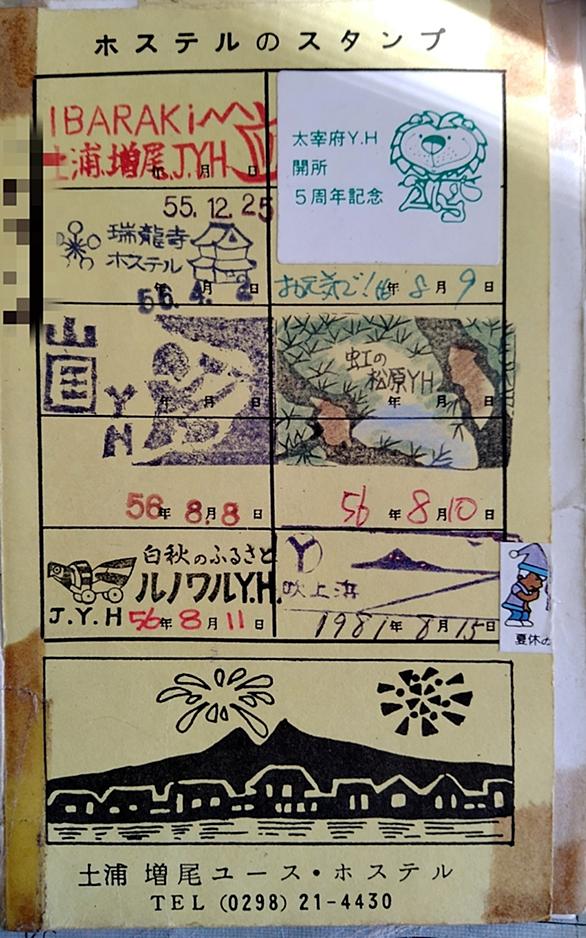 ホステルのスタンプ
IBARAKi
土浦.増尾J.Y.H
年 月 日
55.12.25
瑞龍寺
ホステル
年 月 日
56.4.2
山国
YH
年 月 日
56年 8月8日
白秋のふるさと
ルノワルY.H.
J.Y.H 56年 8月 11日
太宰府Y.H
開所
5周年記念
お元気で!56年 8月 9日
虹の
松原YH
年 月 日
56年 8月10日
Y
吹上浜
1981年 8月15日
夏休の
土浦 増尾ユース・ホステル
TEL (0298) 21-4430